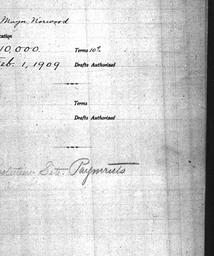 Mayn, Norwood
cation
10,000. Terms 10%
Feb. 1, 1909 Drafts Authorized
Terms
Drafts Authorized
Payments